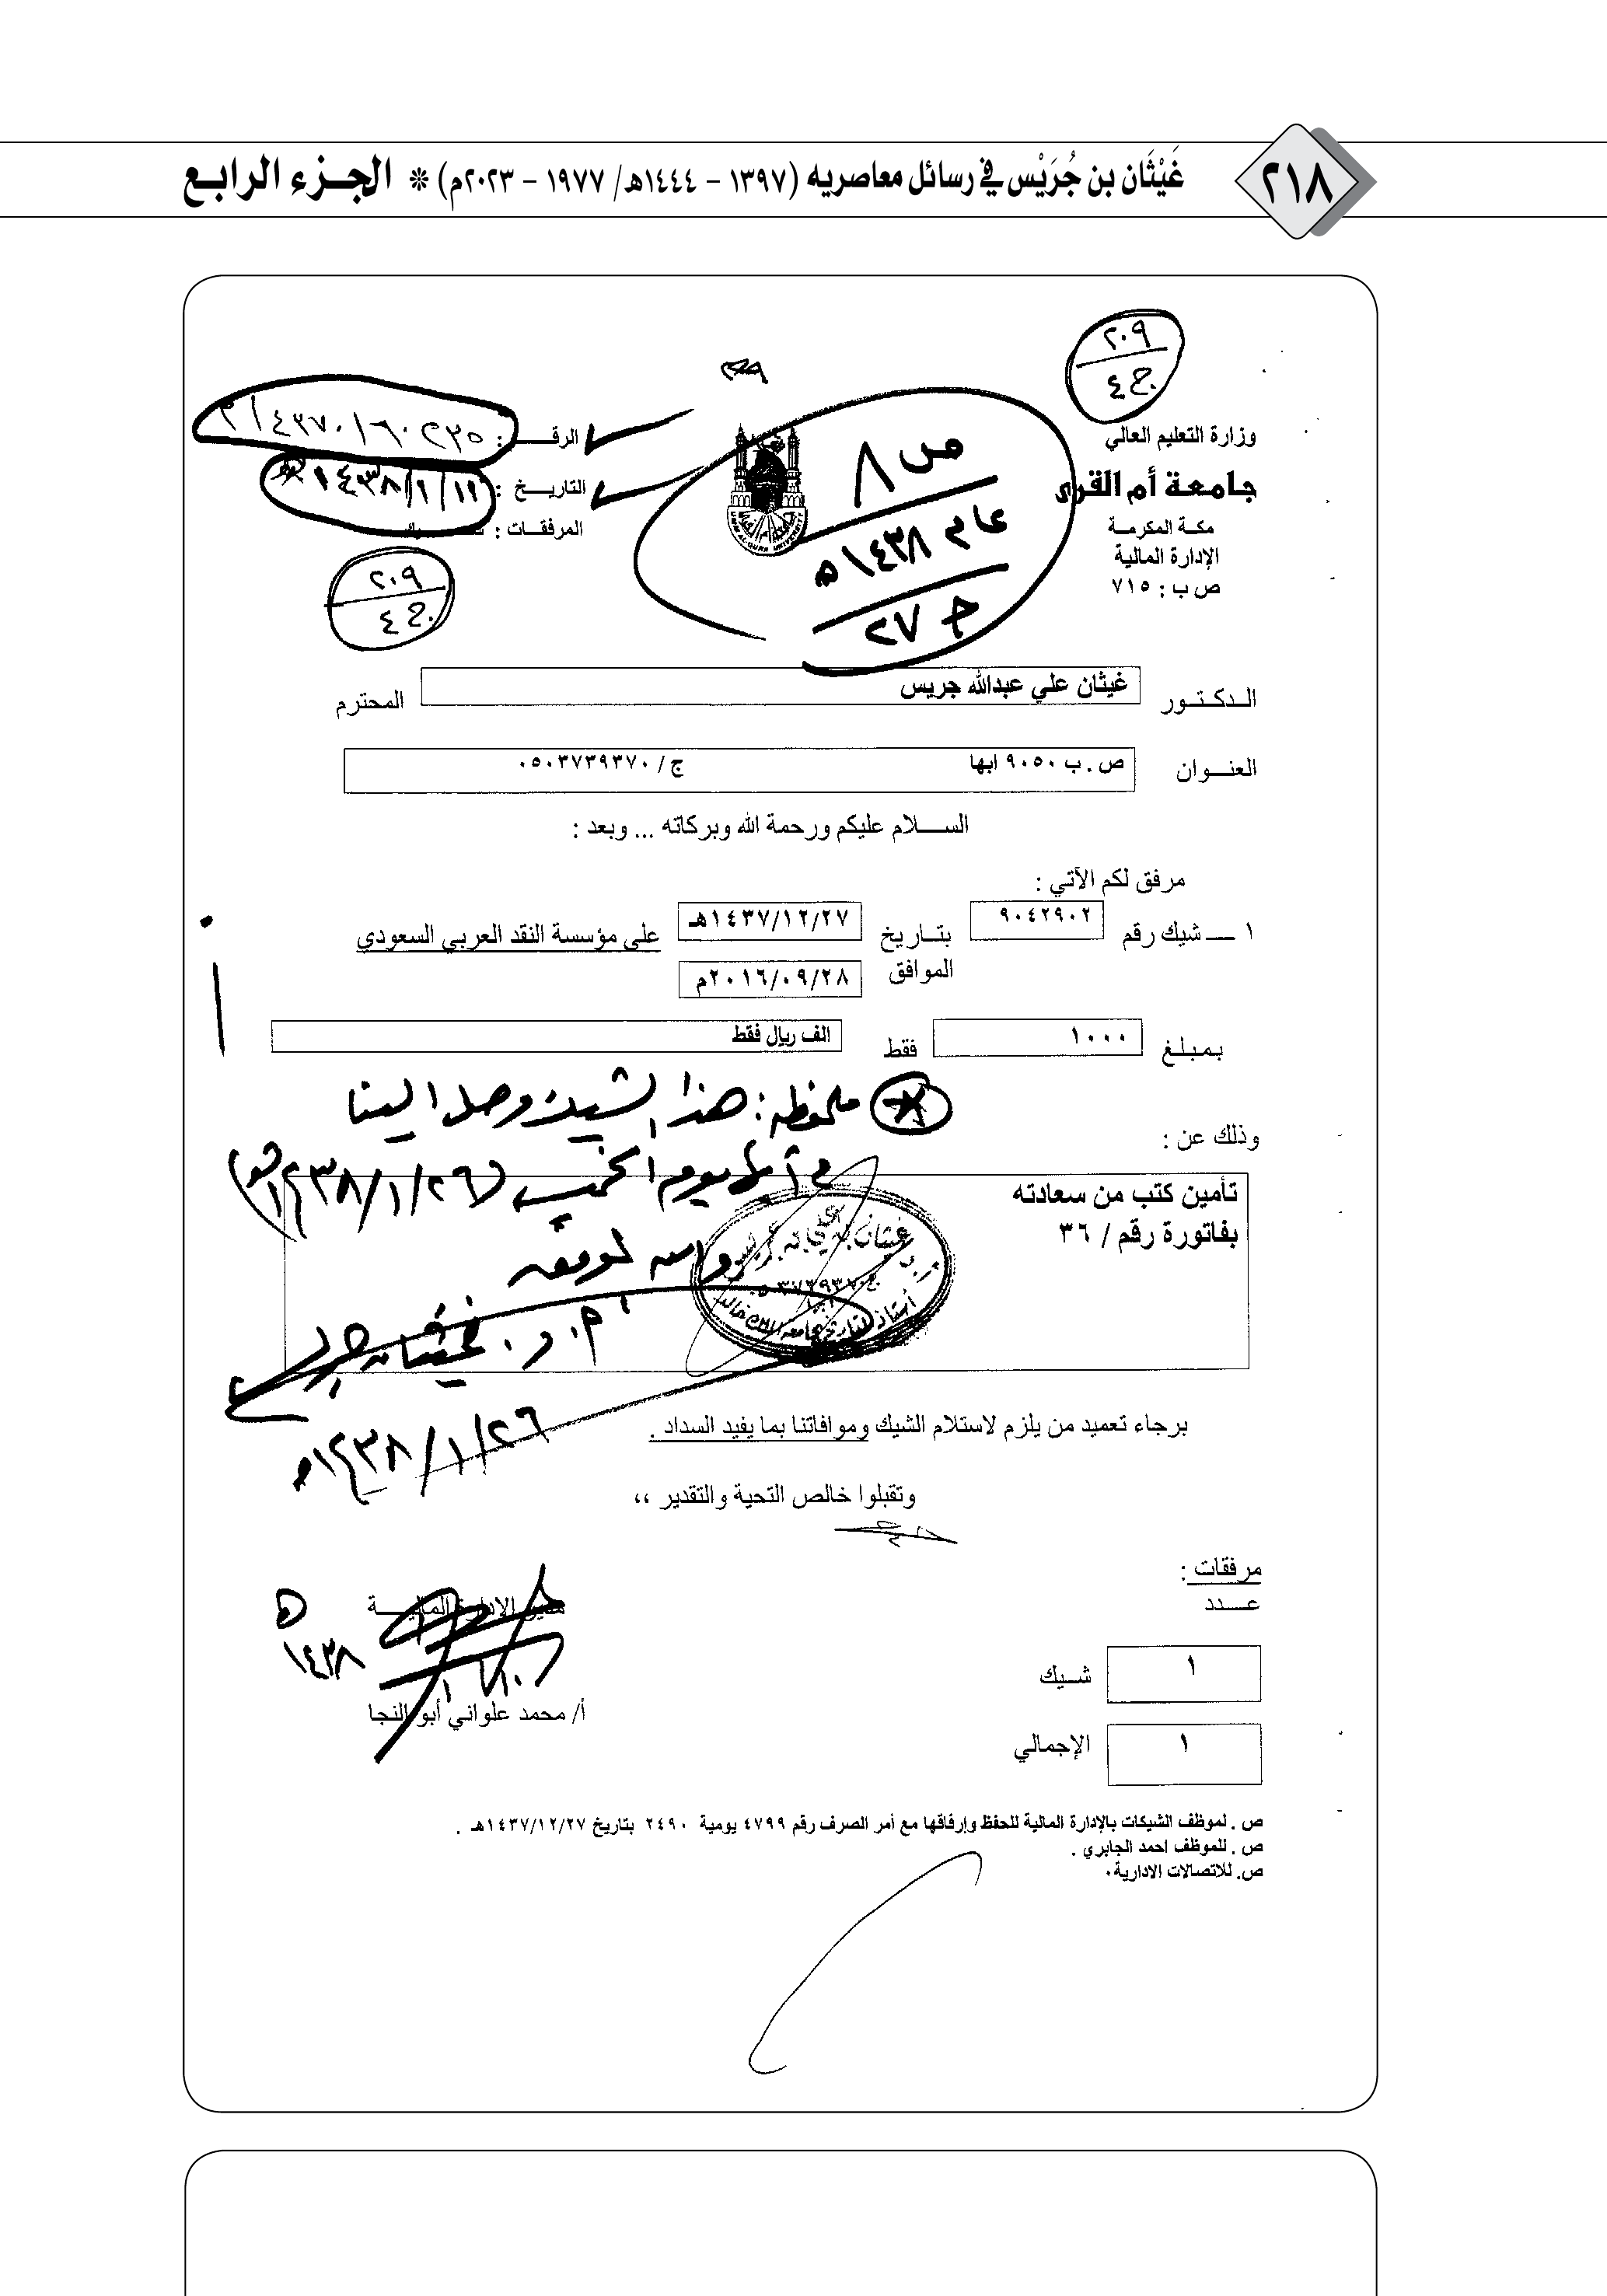 ٢١٨
غَيْثَان بن جُرَيْس في رسائل معاصريه (١٣٩٧ - ١٤٤٤هـ/ ١٩٧٧ - ٢٠٢٣م) * الجـزء الرابـع
٢٠٩
ج٤
وزارة التعليم العالي
جامعة أم القرى
مكـة المكرمـة
الإدارة المالية
ص ب : ٧١٥
ص ٨
عام ١٤٣٨هـ
ج ٢٧
الرقـــم :
التاريـــخ : ١٤٣٨/١/١١هـ
المرفقـات :
٢٠٩
ج٤
الـدكـتـور غيثان علي عبدالله جريس المحترم
العنـــوان ص . ب ٩٠٥٠ ابها ج / ٠٥٠٣٧٣٩٣٧٠
الســـلام عليكم ورحمة الله وبركاته ... وبعد :
مرفق لكم الآتي :
١ ــ شيك رقم ٩٠٤٢٩٠٢ بتـاريخ ١٤٣٧/١٢/٢٧هـ على مؤسسة النقد العربي السعودي
الموافق ٢٠١٦/٠٩/٢٨م
بمبلغ ١٠٠٠ فقط الف ريال فقط
ملحوظه : هذا الشيك وصل الينا
وذلك عن :
في أبها يوم الخميس (١٤٣٨/١/٢٦هـ)
تأمين كتب من سعادته
بفاتورة رقم / ٣٦
والله الموفق
أ. د. غيثان جريس
١٤٣٨/١/٢٦هـ
برجاء تعميد من يلزم لاستلام الشيك وموافاتنا بما يفيد السداد .
وتقبلوا خالص التحية والتقدير ،،
مرفقات :
عـــدد
مدير الإدارة الماليـــة
١٤٣٨هـ
١ شـيك
أ/ محمد علواني أبو النجا
١ الإجمالي
ص . لموظف الشيكات بالإدارة المالية للحفظ وإرفاقها مع أمر الصرف رقم ٤٧٩٩ يومية ٢٤٩٠ بتاريخ ١٤٣٧/١٢/٢٧هـ .
ص . للموظف احمد الجابري .
ص. للاتصالات الادارية٠